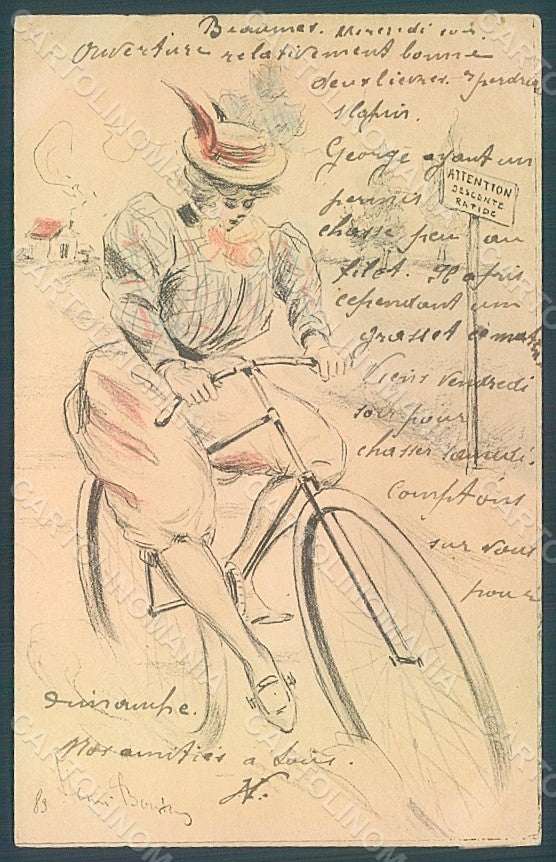 Mercredi soir.
Ouverture relativement bonne
deux lievres. 7 perdrix
1 lapin.
George ayant un
permis
chasse peu au
filet. Il a pris
cependant un
grasset ce matin
Viens Vendredi
soir pour
chasser samedi.
Comptons
sur vous
pour
dimanche.
Nos amitiés a tous.
ATTENTION
DESCENTE
RAPIDE
83
CARTOLINOMANIA